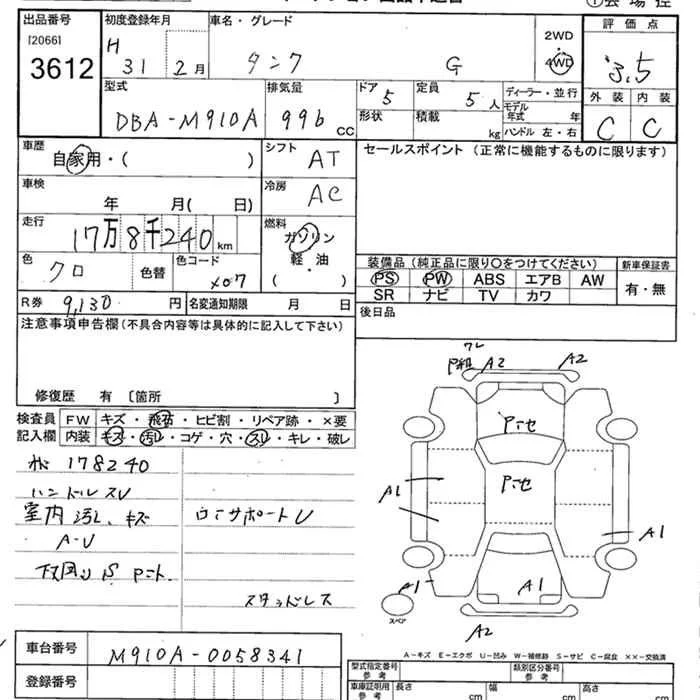 出品番号 初度登録年月 車名・グレード 評価点
[2066] 3612
H 31 2月 タンク G 2WD 4WD 3.5
型式 排気量 ドア 定員 ディーラー・並行 外装 内装
DBA-M910A 996 CC 5 5人 モデル年式 年 C C
形状 積載 kg ハンドル 左・右
車歴 自家用・( ) シフト AT セールスポイント (正常に機能するものに限ります)
車検 年 月( 日) 冷房 AC
走行 17万8千240 km 燃料 ガソリン・軽油 ( )
色 クロ 色替 色コード X07
装備品(純正品に限り〇をつけてください) 新車保証書
PS PW ABS エアB AW 有・無
SR ナビ TV カワ
R券 9,130 円 名変通知期限 月 日
後日品
注意事項申告欄(不具合内容等は具体的に記入して下さい)
修復歴 有 〔箇所 〕
検査員記入欄 FW キズ・飛石・ヒビ割・リペア跡・×要
内装 キズ・汚レ・コゲ・穴・スレ・キレ・破レ
178240
ハンドルスレ
室内汚レ、キズ
A-U
スタッドレス
A2 A2
A1 A1
A1 A1
A2
スペア
A-キズ E-エクボ U-凹み W-補修跡 S-サビ C-腐食 ××-交換済
車台番号 M910A-0058341
登録番号
型式指定番号 参考 類別区分番号 参考
車庫証明用 参考 長さ cm 幅 cm 高さ cm